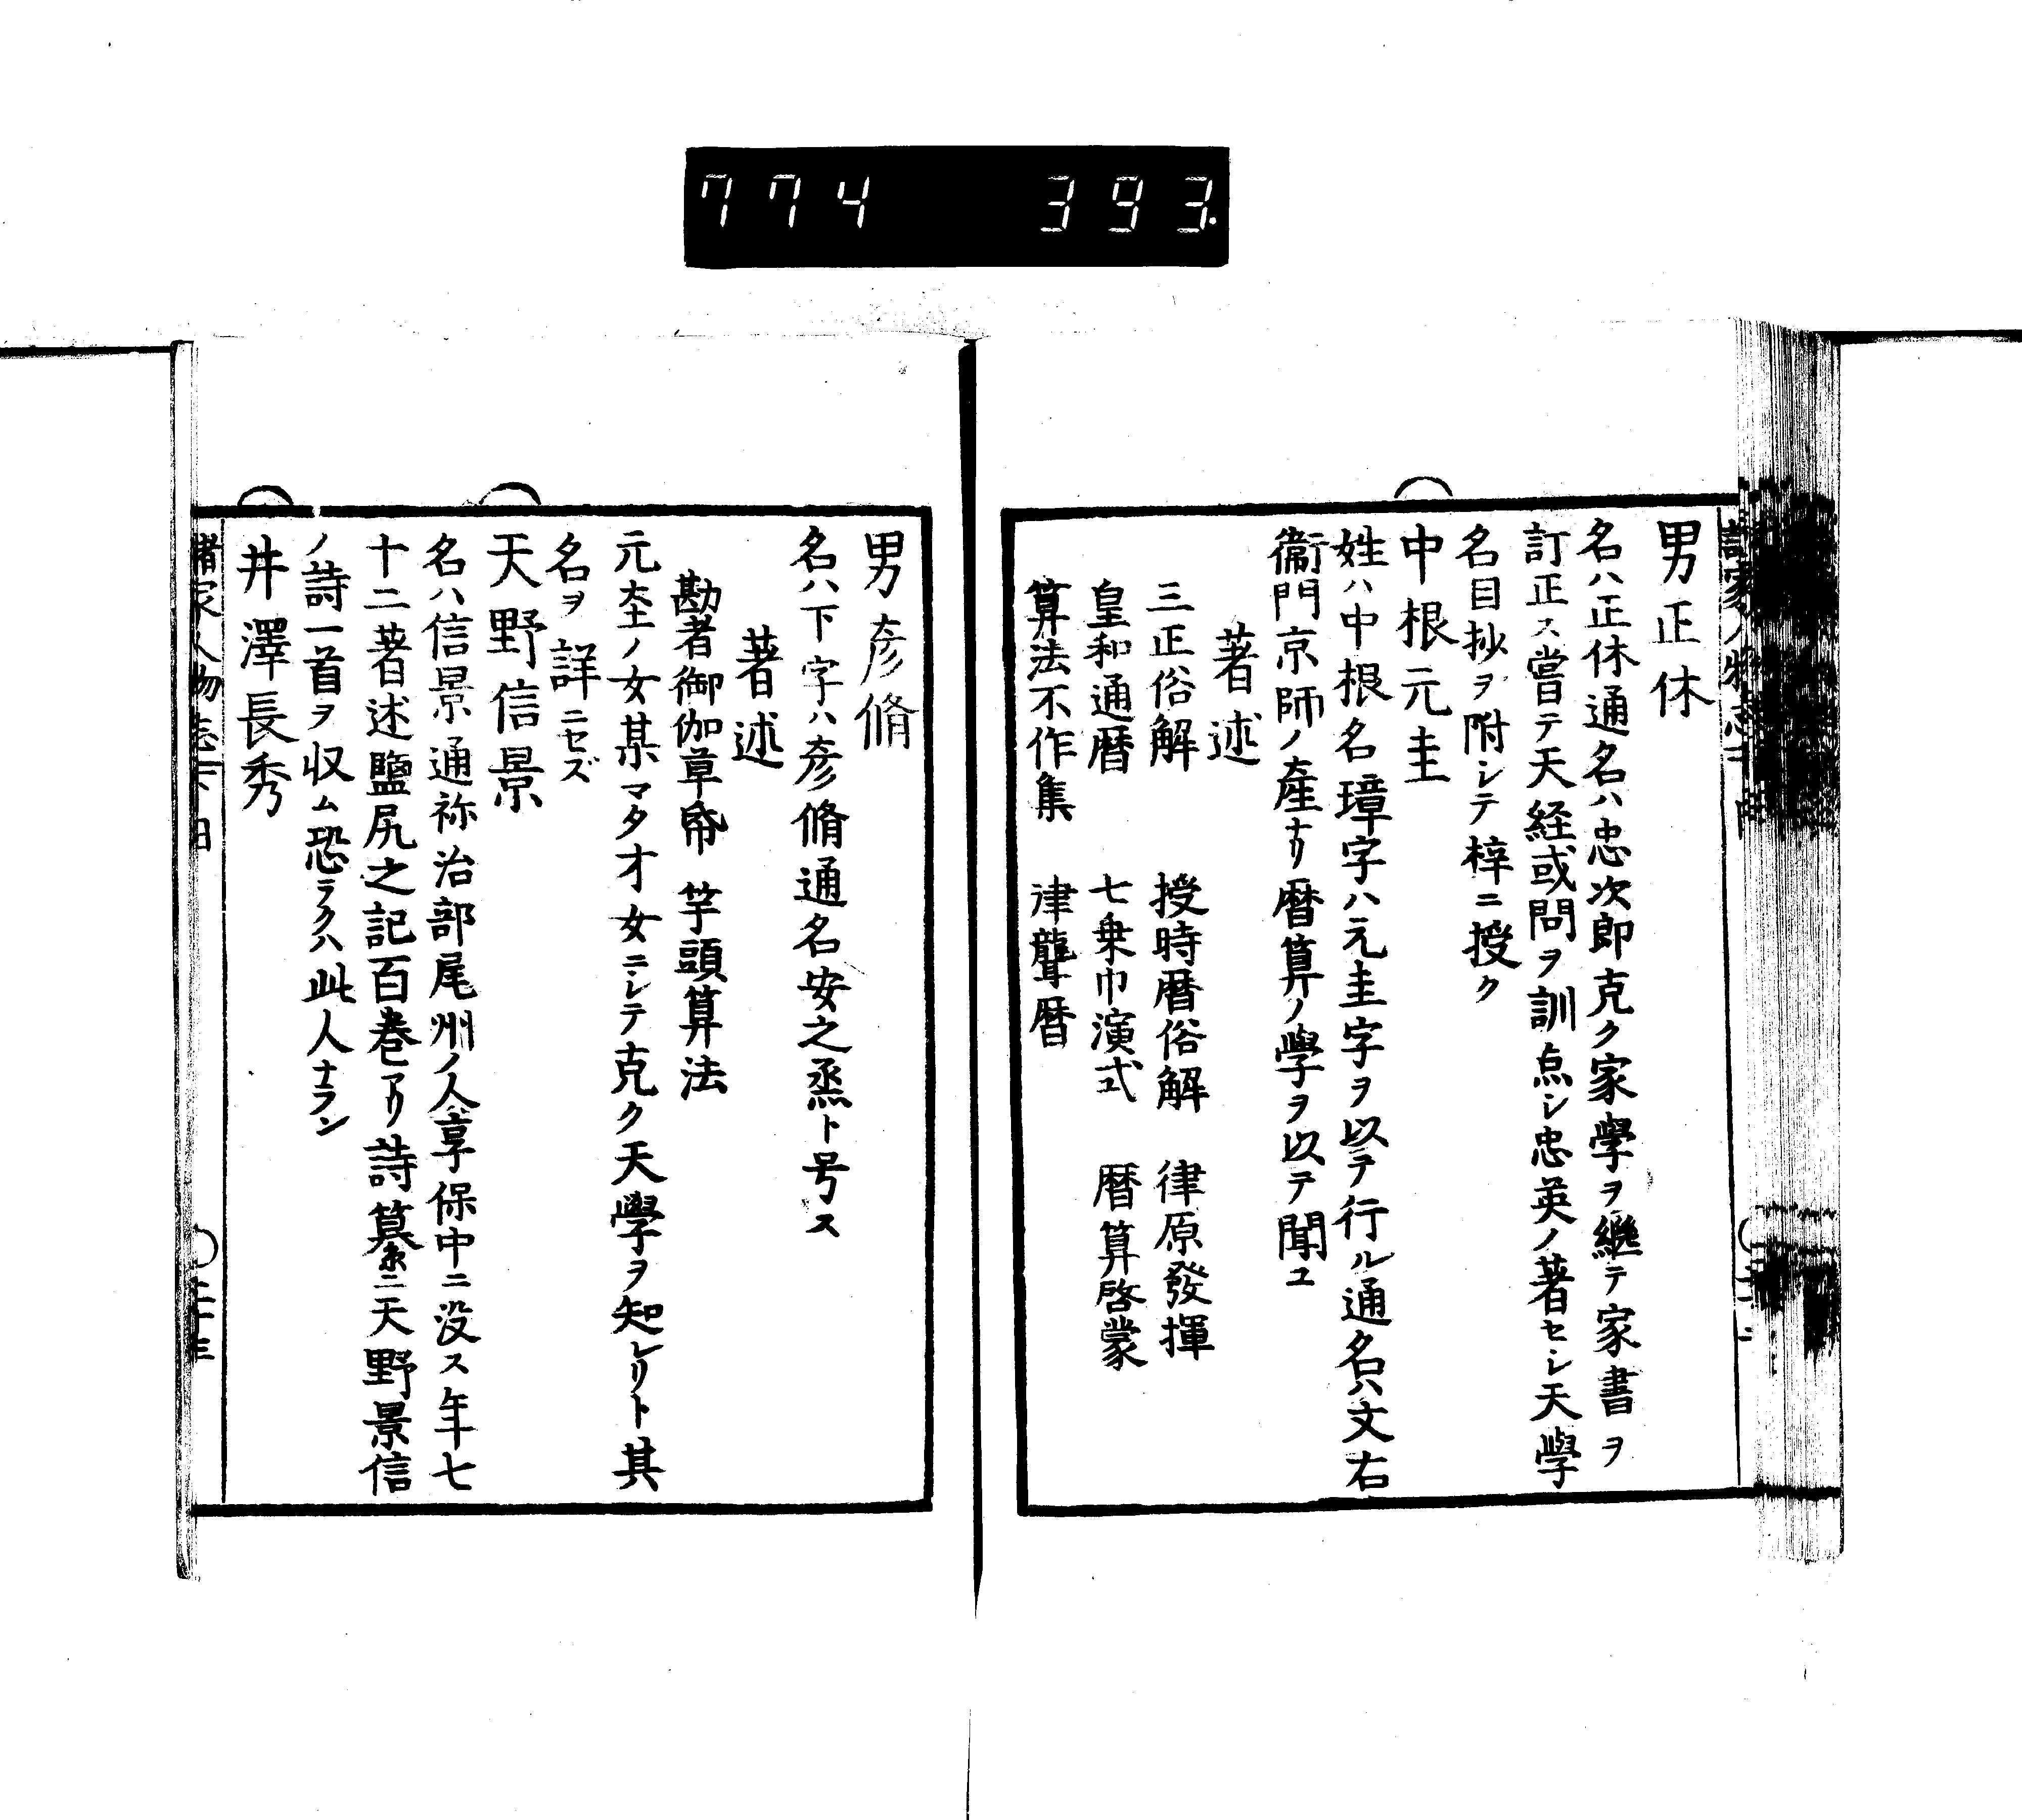 774 393.
男正休
名ハ正休通名ハ忠次郎克ク家學ヲ繼テ家書ヲ
訂正ス嘗テ天経或問ヲ訓点シ忠英ノ著セシ天學
名目抄ヲ附シテ梓ニ授ク
中根元圭
姓ハ中根名璋字ハ元圭字ヲ以テ行ル通名ハ文右
衞門京師ノ産ナリ暦算ノ學ヲ以テ聞ユ
著述
三正俗解 授時暦俗解 律原發揮
皇和通暦 七乗巾演式 暦算啓蒙
算法不作集 律聾暦
男彦脩
名ハ下字ハ彦脩通名安之烝ト号ス
著述
勘者御伽草帋 竿頭算法
元圭ノ女某マタ才女ニシテ克ク天學ヲ知レリト其
名ヲ詳ニセズ
天野信景
名ハ信景通祢治部尾州ノ人享保中ニ没ス年七
十二著述鹽尻之記百巻アリ詩纂ニ天野景信
ノ詩一首ヲ収ム恐ラクハ此人ナラン
井澤長秀
諸家人物志下